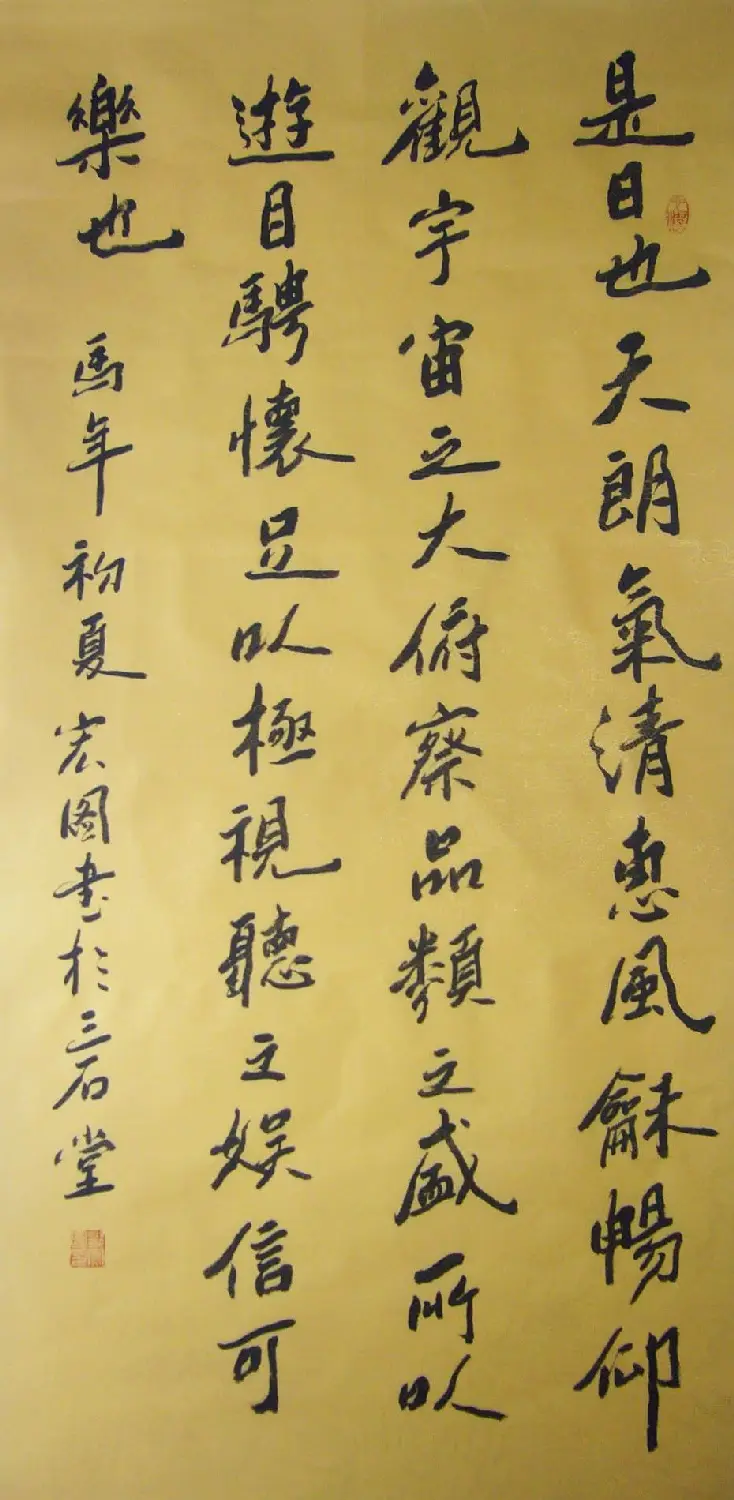 是日也天朗氣清惠風龢暢仰
觀宇宙之大俯察品類之盛所以
遊目騁懷足以極視聽之娛信可
樂也 馬年初夏宏图書於三石堂